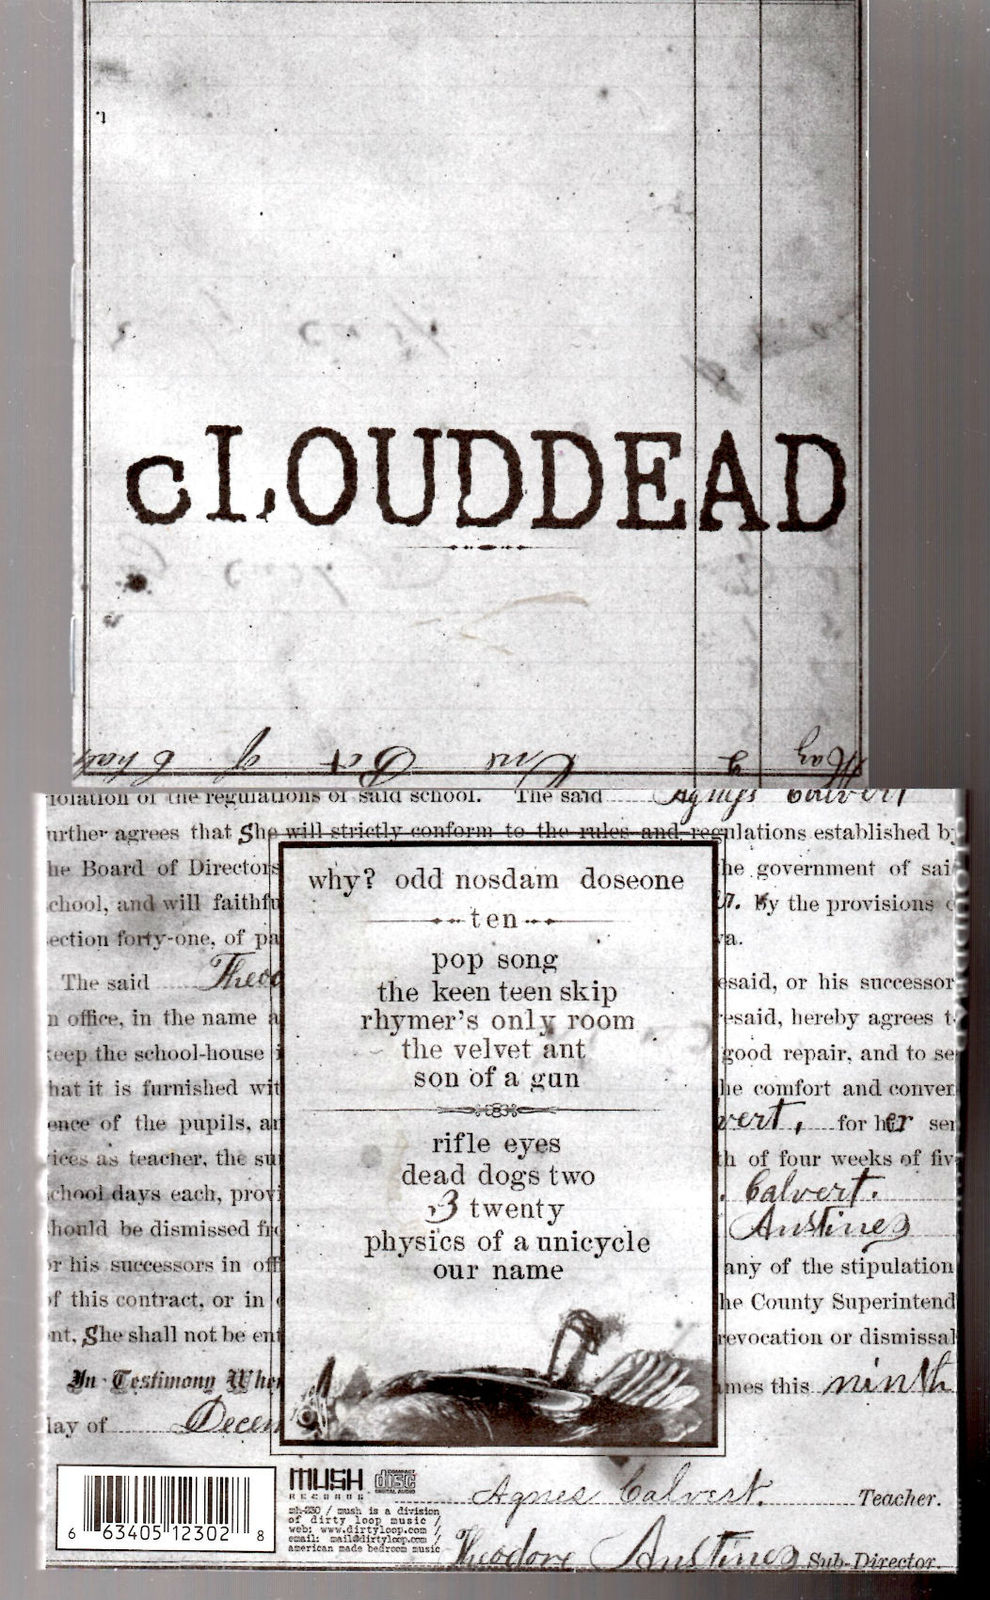 cLOUDDEAD
violation of the regulations of said school. The said Agness Calvert
further agrees that She will strictly conform to the rules and regulations established by
the Board of Directors
the government of said
school, and will faithfu
By the provisions o
section forty-one, of pa
va.
The said Theod
esaid, or his successor
in office, in the name a
esaid, hereby agrees t
keep the school-house i
good repair, and to se
that it is furnished wit
he comfort and conven
ence of the pupils, an
vert, for her ser
ices as teacher, the su
th of four weeks of fiv
school days each, provi
. Calvert.
should be dismissed fro
Austines
or his successors in off
any of the stipulation
of this contract, or in c
he County Superintend
ent, She shall not be ent
revocation or dismissal
In Testimony Wher
mes this ninth
day of Decem
why? odd nosdam doseone
ten
pop song
the keen teen skip
rhymer's only room
the velvet ant
son of a gun
rifle eyes
dead dogs two
3 twenty
physics of a unicycle
our name
6 63405 12302 8
MUSH
RECORDS
COMPACT
disc
DIGITAL AUDIO
mh-230 / mush is a division
of dirty loop music /
web: www.dirtyloop.com /
email: mail@dirtyloop.com /
american made bedroom music
Agnes Calvert. Teacher.
Theodore Austines Sub-Director.